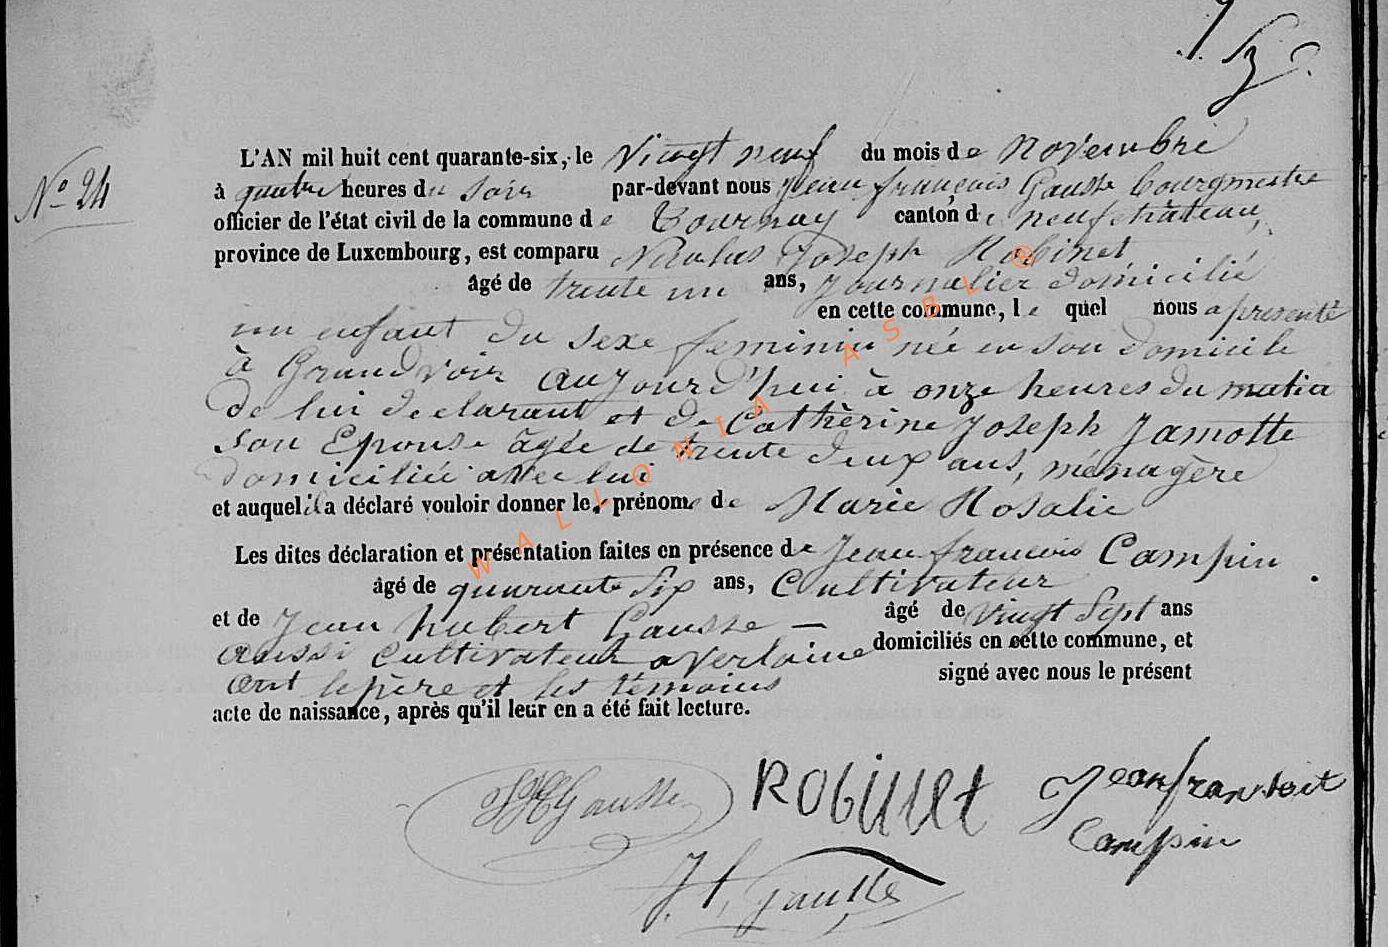 N.º 24
L'AN mil huit cent quarante-six, le Vingt neuf du mois de Novembre
à quatre heures du soir par-devant nous Jean françois Gausse bourgmestre
officier de l'état civil de la commune de Tournay canton de neufchâteau,
province de Luxembourg, est comparu Nicolas Joseph Robinet
âgé de trente un ans, Journalier domicilié
en cette commune, le quel nous a présenté
un enfant du sexe feminin née en son domicile
à Grandvoir aujourd'hui à onze heures du matin
de lui declarant et de Cathèrine Joseph Jamotte
son Epouse âgée de trente deux ans, ménagère
domiciliée avec lui
et auquel il a déclaré vouloir donner les prénoms de Marie Rosalie
Les dites déclaration et présentation faites en présence de Jean francois Campin
âgé de quarante Six ans, Cultivateur
et de Jean hubert Gausse — âgé de vingt Sept ans
aussi Cultivateur a Verlaine domiciliés en cette commune, et
ont le père et les témoins signé avec nous le présent
acte de naissance, après qu'il leur en a été fait lecture.
JH Gausse Robinet Jean fran
Campin
J. f. Gausse
WALLONIA ASBL ©